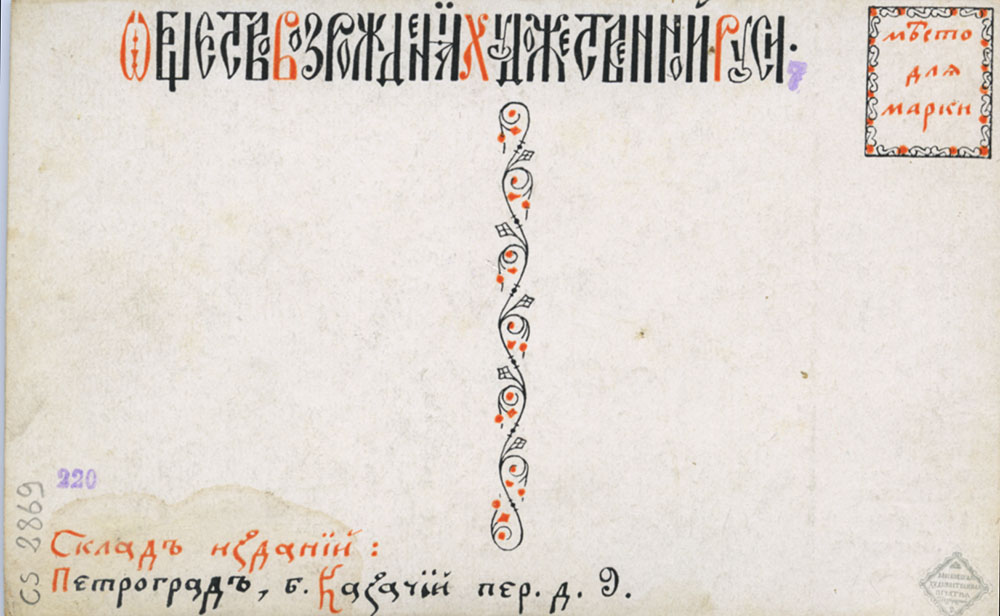 Ѻбщество Возрожденїя Художественной Руси.
7
мѣсто
для
марки
220
CS 2869
Складъ изданїй:
Петроградъ, б. Казачїй пер. д. 9.